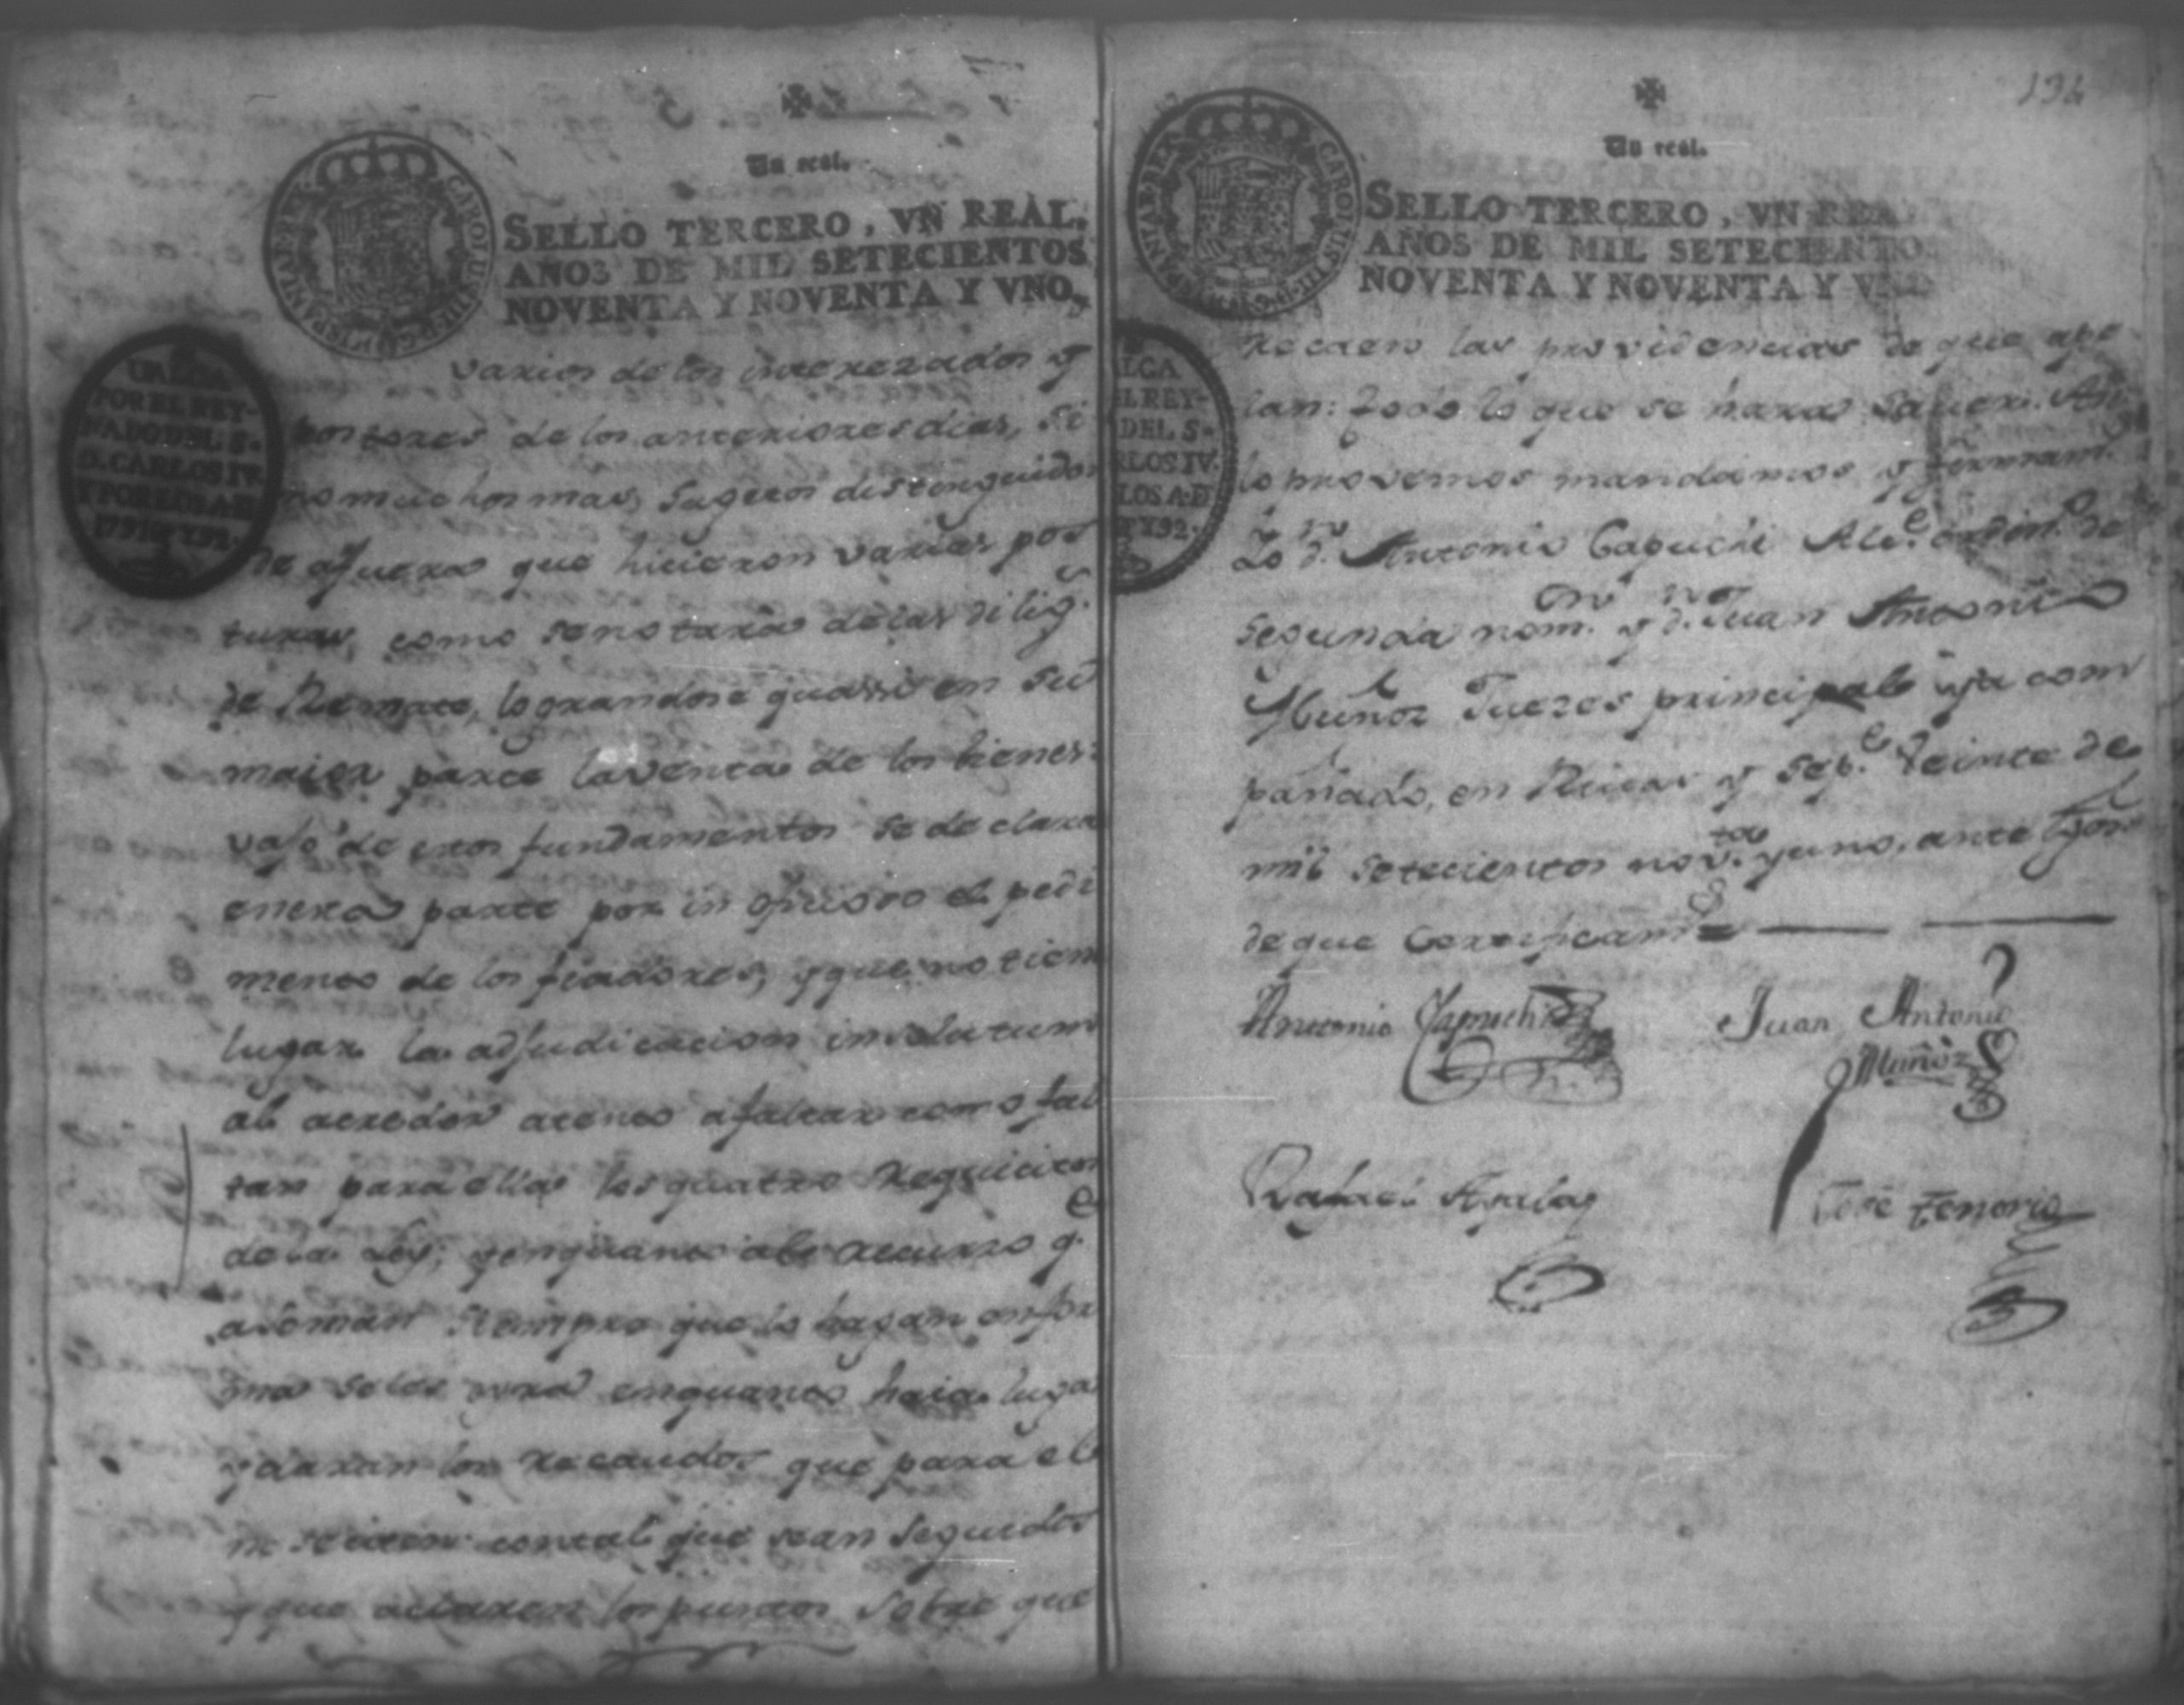 Un real.
SELLO TERCERO, VN REAL,
AÑOS DE MIL SETECIENTOS
NOVENTA Y NOVENTA Y VNO,
VALGA
POR EL REY-
NADO DEL S.
D. CARLOS IV.
Y POR LOS A. D
1791 Y 92.
varios de los interezados y
postores de los anteriores dias, si
no muchos mas, sugetos distinguidos
de afuera que hicieron varias pos
turas, como se notará de las dilig.s
de Remate, lograndose quassi en su
maior parte la venta de los bienes:
vajo de estos fundamentos se declara
en esta parte por in ofisioso el pedi
mento de los fiadores, y que no tiene
lugar la adjudicacion insolutum
al acredor atento a faltar como fal
tan para ella los quatro requicitos
de la Ley; y en quanto al recurzo q.e
asoman siempre que lo hagan en for
ma se les oyra en quanto haia lugar
y daran los recaudos que para el
nesesiten con tal que sean seguidos
y que aclaren los puntos sobre que
136
Un real.
SELLO TERCERO, VN REA
AÑOS DE MIL SETECIENTO
NOVENTA Y NOVENTA Y VN
LGA
L REY-
DEL S.
RLOS IV.
LOS A. D
Y 92.
recaen las providencias de que ape
lan: todo lo que se hará saver. Asi
lo provemos mandamos y firmam.s
Antonio Capuchi Alc.e ordin.o de
segunda nom.on y d.n Juan Antonio
Muñoz Juezes principal y a com
pañado, en y Sep.e veinte de
mil setecientos nov.ta y uno, ante
de que Certificam.s
Antonio Capuchi
Juan Antonio
Muñoz
Rafael Ayala
José Tenorio